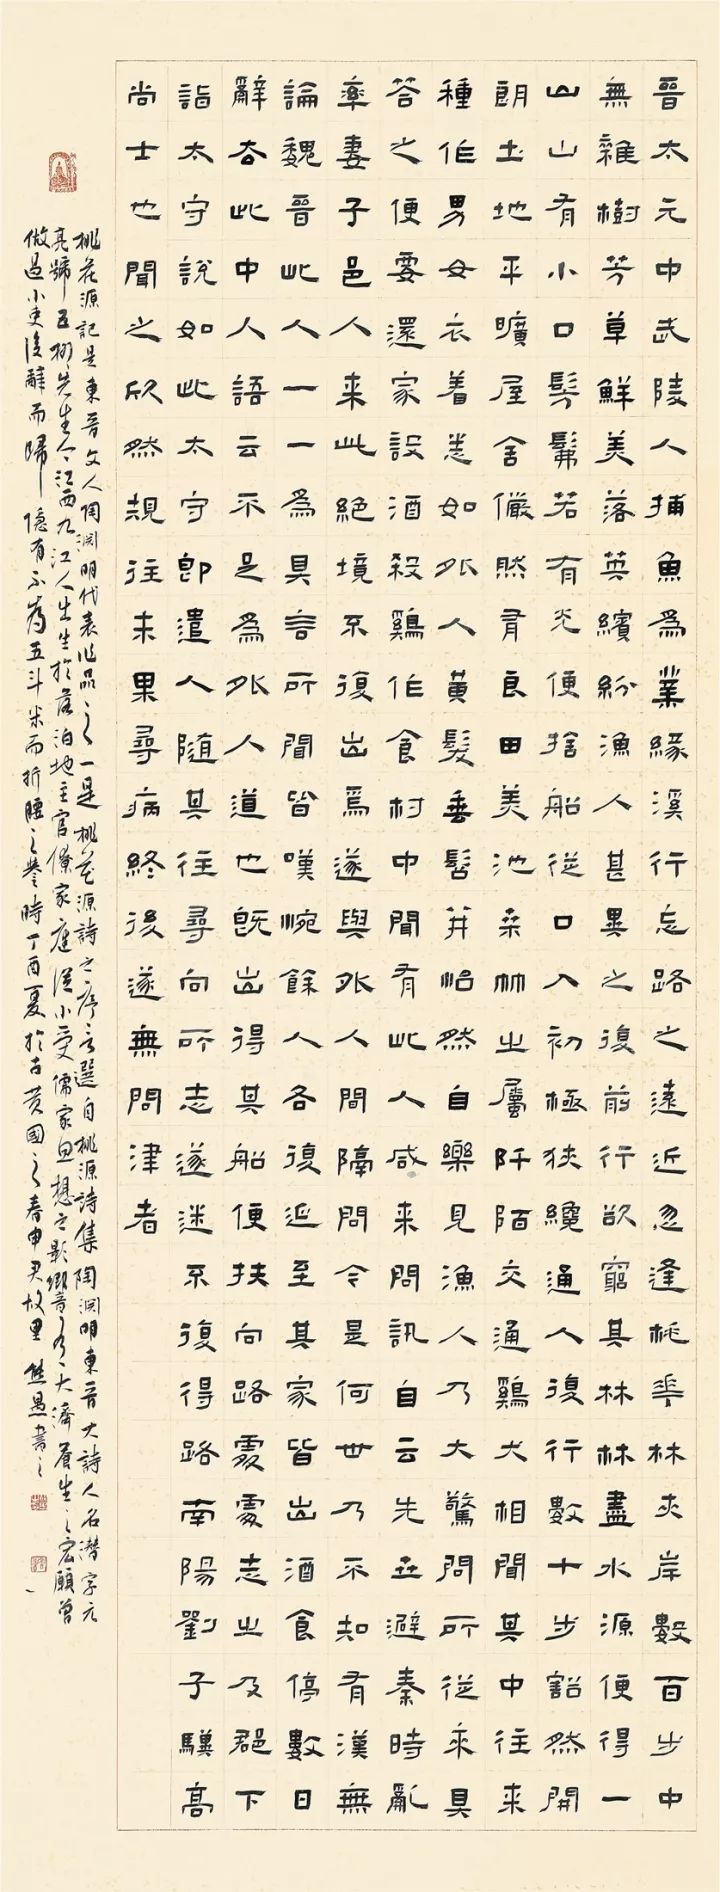 晉太元中武陵人捕魚為業緣溪行忘路之遠近忽逢桃華林夾岸數百步中
無雜樹芳草鮮美落英繽紛漁人甚異之復前行欲窮其林林盡水源便得一
山山有小口髣髴若有光便捨船從口入初極狹纔通人復行數十步豁然開
朗土地平曠屋舍儼然有良田美池桑竹之屬阡陌交通鷄犬相聞其中往來
種作男女衣着悉如外人黃髮垂髫并怡然自樂見漁人乃大驚問所從來具
答之便要還家設酒殺鷄作食村中聞有此人咸來問訊自云先世避秦時亂
率妻子邑人来此絕境不復出焉遂與外人間隔問今是何世乃不知有漢無
論魏晉此人一一為具言所聞皆嘆惋餘人各復延至其家皆出酒食停數日
辭去此中人語云不足為外人道也既出得其船便扶向路處處志之及郡下
詣太守說如此太守即遣人隨其往尋向所志遂迷不復得路南陽劉子驥高
尚士也聞之欣然規往未果尋病終後遂無問津者
桃花源記是東晉文人陶淵明代表作品之一是桃花源詩之序言選自桃源詩集陶淵明東晉大詩人名潛字元
亮號五柳先生今江西九江人出生於落泊地主官僚家庭從小受儒家思想之影響有大濟蒼生之宏願曾
做過小吏後辭而歸隱有不為五斗米而折腰之譽時丁酉夏於古黃國之春申君故里熊愚書之